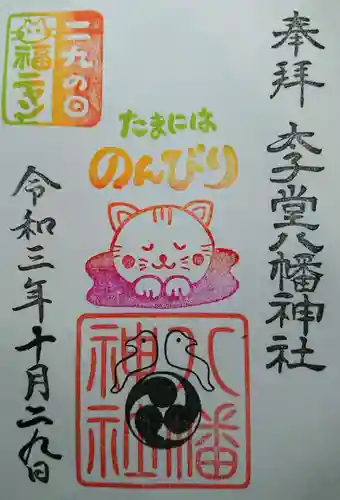 奉拝
太子堂八幡神社
二九の日
福ニャン
たまには
のんびり
八幡
神社
令和三年十月二九日